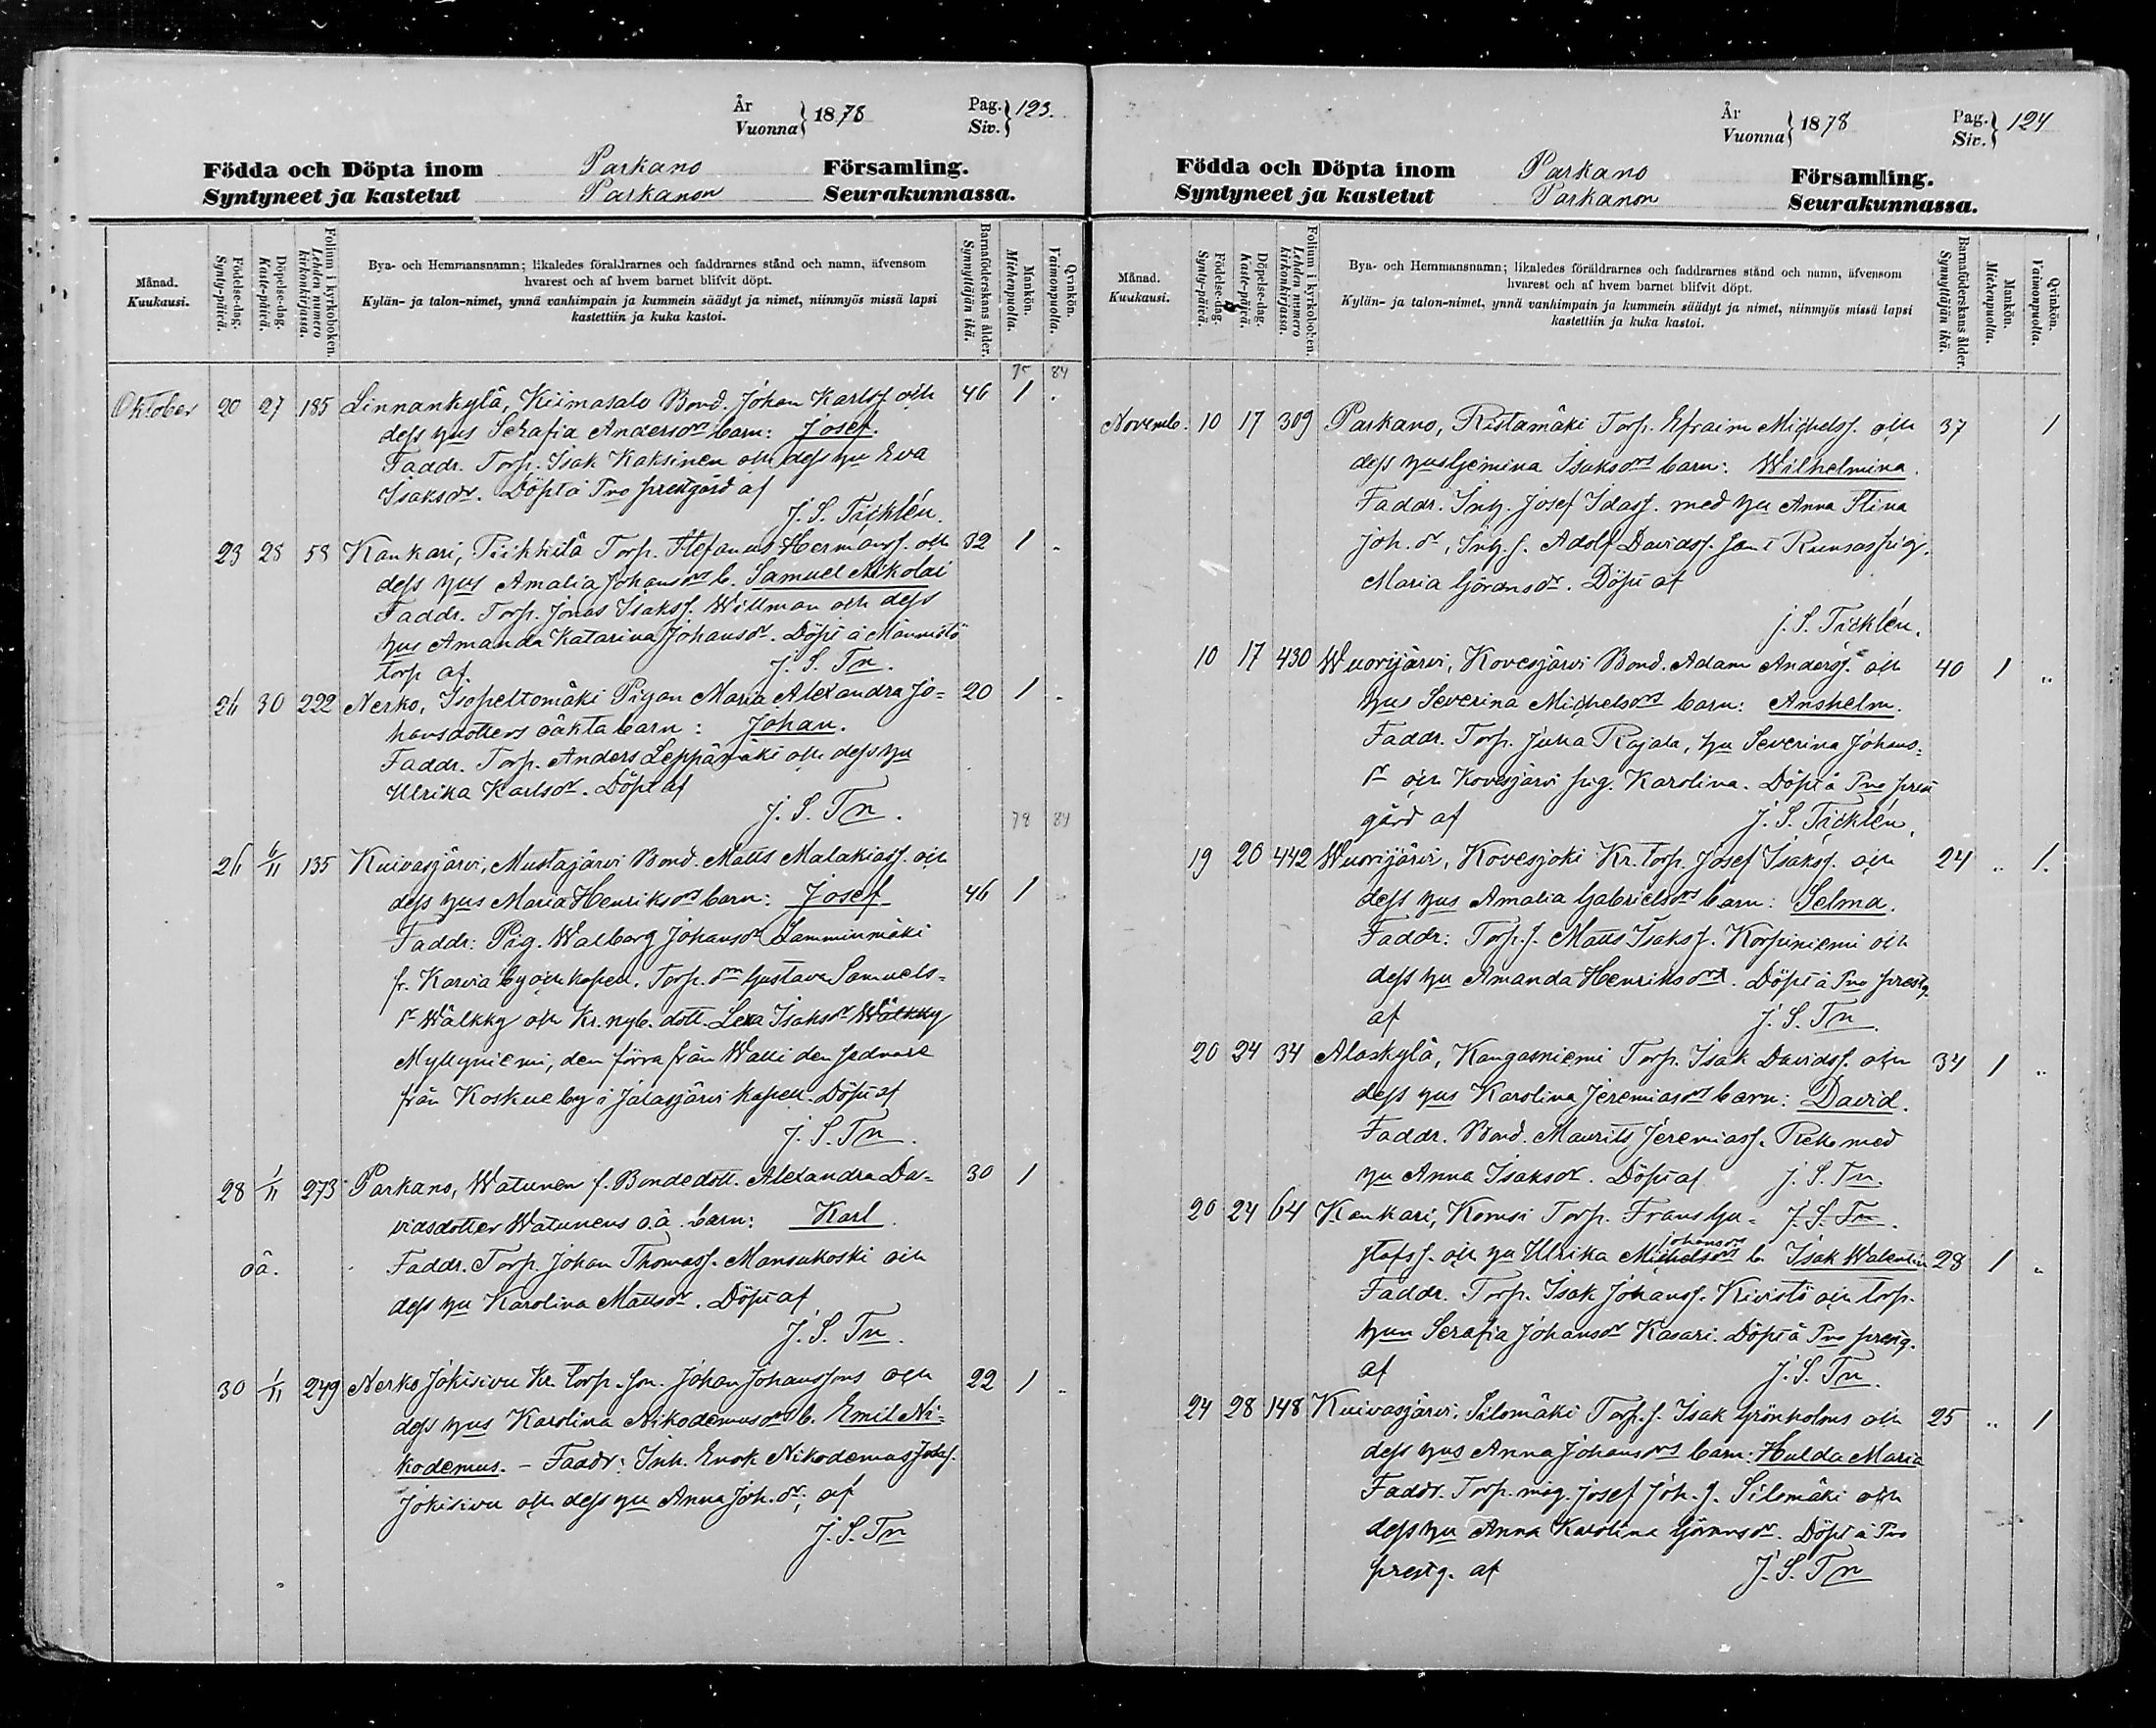 År
Vuonna } 1878
Pag.
Siv. } 123.
Födda och Döpta inom Parkano Församling.
Syntyneet ja kastetut Parkanon Seurakunnassa.
Månad.
Kuukausi.
Födelse-dag.
Synty-päivä.
Döpelse-dag.
Kaste-päivä.
Folium i kyrkoboken.
Lehden numero kirkonkirjassa.
Bya- och Hemmansnamn; likaledes föräldrarnes och faddrarnes stånd och namn, äfvensom
hvarest och af hvem barnet blifvit döpt.
Kylän- ja talon-nimet, ynnä vanhimpain ja kummein säädyt ja nimet, niinmyös missä lapsi
kastettiin ja kuka kastoi.
Barnaföderskans ålder.
Synnyttäjän ikä.
Mankön.
Miehenpuolta.
Qvinkön.
Vaimonpuolta.
75 84
Oktober 20 27 185 Linnankylä, Kiimasalo Bond. Johan Karlss. och 46 1
dess hus Serafia Andersdrs barn: Josef.
Faddr. Torp. Isak Kaksinen och dess hu Eva
Isaksdr. Döpt å Pno prestgård af
J. S. Täcklén.
23 28 58 Kankari, Pirkkilä Torp. Stefanus Hermanss. och 32 1
dess hus Amalia Johansdrs b. Samuel Nikolai
Faddr. Torp. Jonas Isakss. Willman och dess
hus Amanda Katarina Johansdr. Döpt å Männistö
torp af. J. S. Tn.
26 30 222 Nerko, Isopeltomäki Pigan Maria Alexandra Jo- 20 1
hansdotters oäkta barn: Johan.
Faddr. Torp. Anders Leppämäki och dess hu
Ulrika Karlsdr. Döpt af
J. S. Tn.
78 84
26 6/11 135 Kuivasjärvi, Mustajärvi Bond. Matts Malakiass. och
dess hus Maria Henriksdrs barn: Josef 46 1
Faddr: Pig. Walborg Johansdr Lamminmäki
fr. Karvia by och kapell. Torp. drn Gustava Samuels-
dr Wälkky och Kr. nyb. dott. Lena Isaksdr Wälkky
Myllyniemi, den förra från Walli den sednare
från Koskue by i Jalasjärvi kapell. Döpt af
J. S. Tn.
28 1/11 273 Parkano, Watunen f. Bondedott. Alexandra Da- 30 1
vidsdotter Watunens o.ä. barn: Karl.
oä. Faddr. Torp. Johan Thomass. Mansukoski och
dess hu Karolina Mattsdr. Döpt af
J. S. Tn.
30 1/11 249 Nerko, Jokisivu Kr. torp. sn. Johan Johanssons och 22 1
dess hus Karolina Nikodemusdrs b. Emil Ni-
kodemus. – Faddr: Inh. Enok Nikodemus
Jokisivu och dess hu Anna Joh. dr; af
J. S. Tn
År
Vuonna } 1878
Pag.
Siv. } 124
Födda och Döpta inom Parkano Församling.
Syntyneet ja kastetut Parkanon Seurakunnassa.
Månad.
Kuukausi.
Födelse-dag.
Synty-päivä.
Döpelse-dag.
Kaste-päivä.
Folium i kyrkoboken.
Lehden numero kirkonkirjassa.
Bya- och Hemmansnamn; likaledes föräldrarnes och faddrarnes stånd och namn, äfvensom
hvarest och af hvem barnet blifvit döpt.
Kylän- ja talon-nimet, ynnä vanhimpain ja kummein säädyt ja nimet, niinmyös missä lapsi
kastettiin ja kuka kastoi.
Barnaföderskans ålder.
Synnyttäjän ikä.
Mankön.
Miehenpuolta.
Qvinkön.
Vaimonpuolta.
Novemb. 10 17 309 Parkano, Ristamäki Torp. Efraim Michelss. och 37 1
dess hus Gemina Isaksdrs barn: Wilhelmina.
Faddr. Inh. Josef Idass. med hu Anna Stina
Joh. dr, Inh. s. Adolf Davidss. samt pig.
Maria Göransdr. Döpt af
J. S. Täcklén.
10 17 430 Wuorijärvi, Kovesjärvi Bond. Adam Anderss. och 40 1 „
hus Severina Michelsdrs barn: Anshelm.
Faddr. Torp. Juha Rajala, hu Severina Johans-
dr och Kovesjärvi pig. Karolina. Döpt å Pno prest
gård af J. S. Täcklén.
19 20 442 Wuorijärvi, Kovesjoki Kr. torp. Josef Isakss. och 24 „ 1.
dess hus Amalia Gabrielsdrs barn: Selma.
Faddr: Torp. s. Matts Isakss. Korpiniemi och
dess hu Amanda Henriksdr. Döpt å Pno prestg.
af J. S. Tn
20 24 34 Alaskylä, Kangasniemi Torp. Isak Davidss. och 34 1 „
dess hus Karolina Jeremiasdrs barn: David.
Faddr. Bond. Maurits Jeremiass. med
hu Anna Isaksdr. Döpt af J. S. Tn.
20 24 64 Kankari, Komsi Torp. Frans Gu- J. S. Tn.
Johansdrs
stafss. och hu Ulrika Michelsdrs b. Isak Walentin 28 1 „
Faddr. Torp. Isak Johanss. Kivistö och torp.
hun Serafia Johansdr Kasari. Döpt å Pno prestg.
af J. S. Tn.
24 28 148 Kuivasjärvi, Silomäki Torp. s. Isak Grönholms och 25 „ 1
dess hus Anna Johansdrs barn: Hulda Maria
Faddr. Torp. måg. Josef Joh. s. Silomäki och
dess hu Anna Karolina Göransdr. Döpt å Pno
prestg. af J. S. Tn